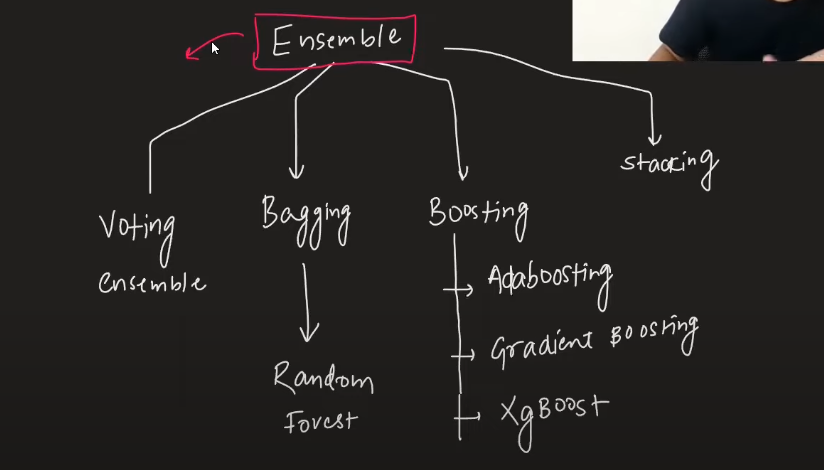 Ensemble
Voting
ensemble
Bagging
Random
Forest
Boosting
Adaboosting
Gradient Boosting
XgBoost
Stacking